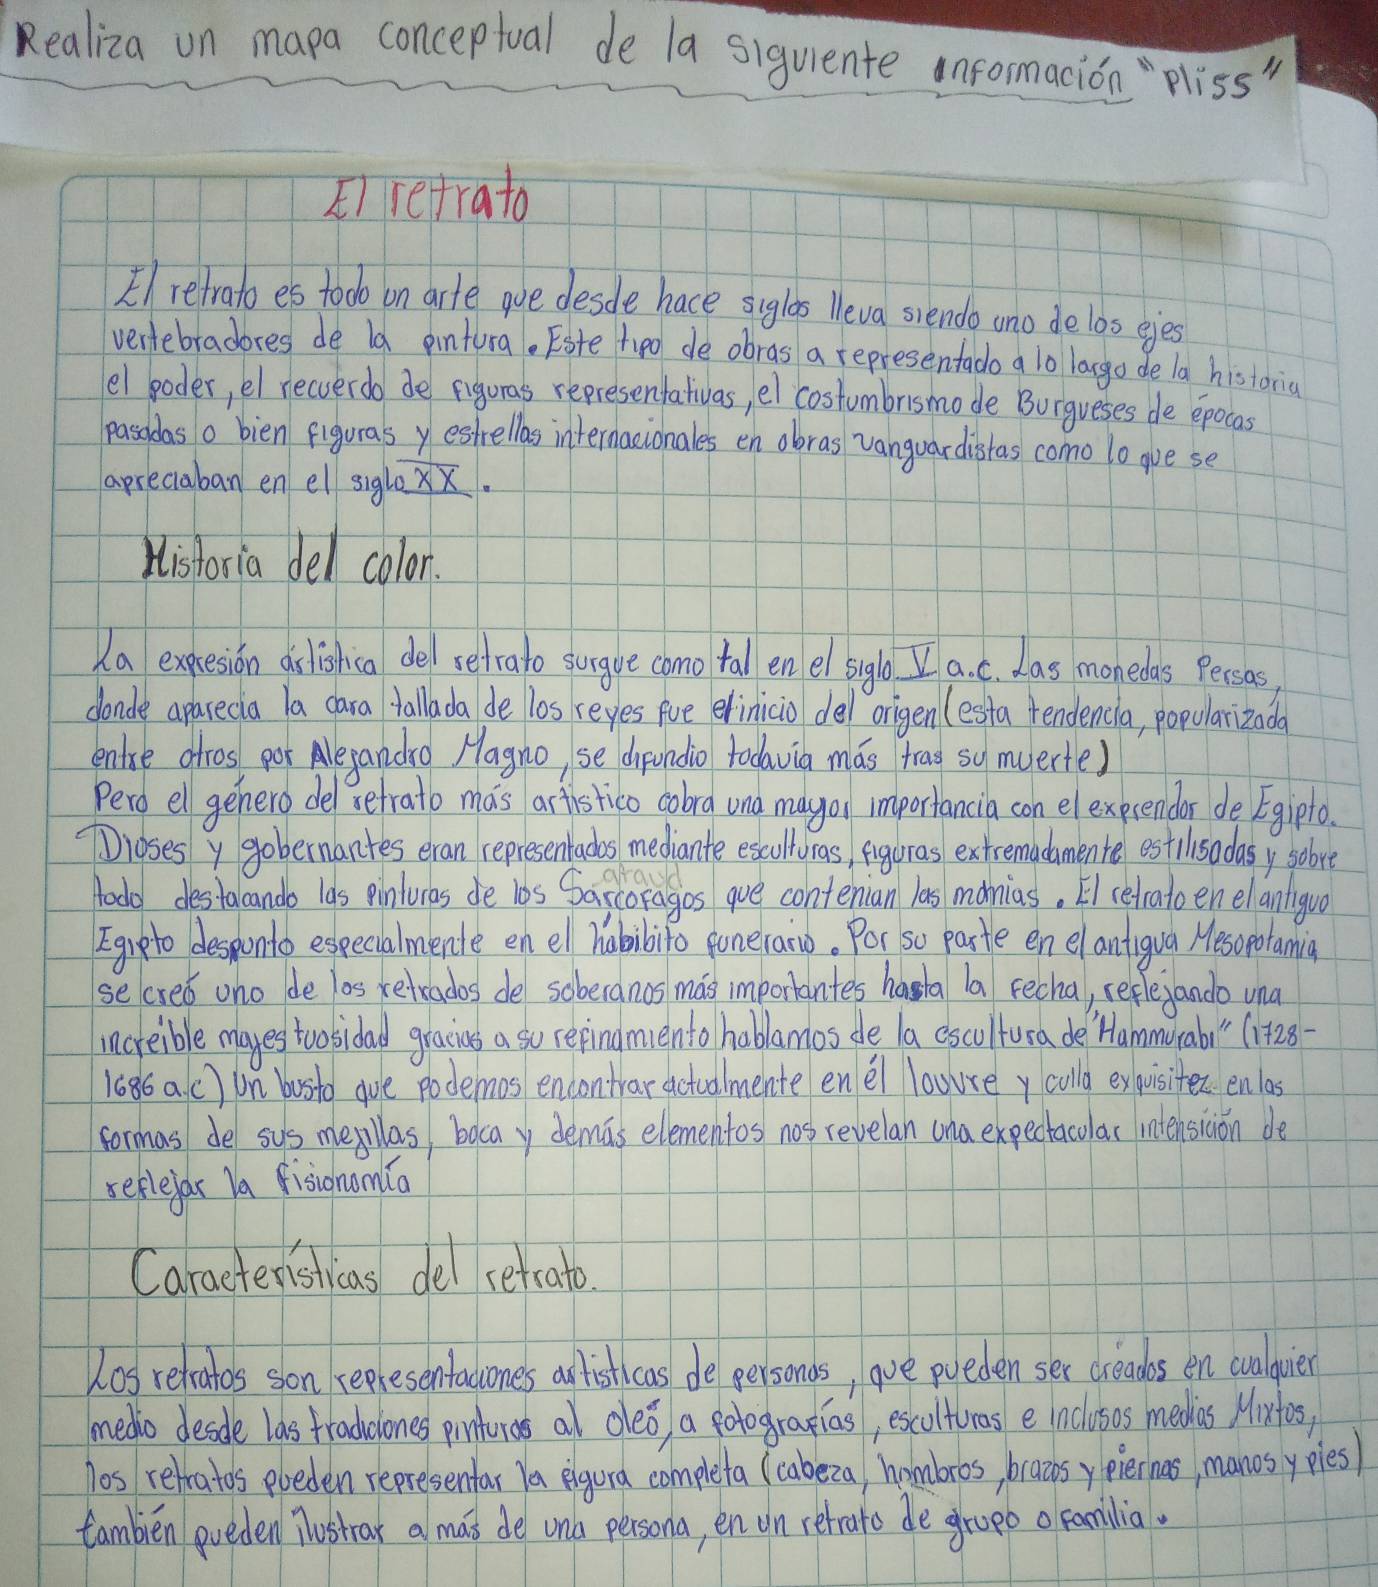 Realiza un mapa conceptual de la siguiente información "Pliss"
El retrato
El retrato es todo un arte que desde hace siglos lleva siendo uno de los ejes
vertebradores de la pintura. Este tipo de obras a representado a lo largo de la historia
el poder, el recuerdo de figuras representativas, el costumbrismo de Burgueses de épocas
pasadas o bien figuras y estrellas internacionales en obras vanguardistas como lo que se
apreciaban en el siglo XX.
Historia del color.
La expresión artistica del retrato surgue como tal en el siglo V a.c. Las monedas Persas,
donde aparecia la cara tallada de los reyes fue el inicio del origen (esta tendencia, popularizada
entre otros por Alejandro Magno, se difundio todavia más tras su muerte)
Pero el género del retrato más artistico cobra una mayor importancia con el exprendor de Egipto.
Dioses y gobernantes eran representados mediante esculturas, figuras extremadamente estilisadas y sobre
todo destacando las pinturas de los Sarcofagos que contenian las momias. El retrato en el antiguo
Egipto despunto especialmente en el habibito funerario. Por su parte en el antigua Mesopotamia
se creó uno de los retrados de soberanos más importantes hasta la fecha, reflejando una
increible majestuosidad gracias a su refinamiento hablamos de la escultura de "Hammurabi" (1728-
1686 a.c) Un busto que podemos encontrar actualmente en él louvre y culla exquisitez en las
formas de sus mejillas, boca y demás elementos nos revelan una expectacular intensición de
reflejar la fisionomía
Características del retrato.
Los retratos son representaciones artisticas de personas, que pueden ser creados en cualquier
medio desde las tradiciones pinturas al oleó, a fotografías, esculturas e inclusos medios Mixtos,
los retratos pueden representar la figura completa (cabeza, hombros, brazos y piernas, manos y pies)
también pueden ilustrar a más de una persona, en un retrato de grupo o familia.